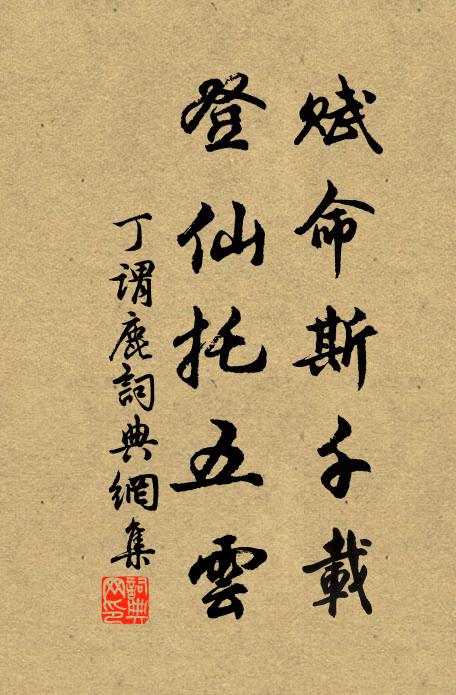 賦命斯千載
登仙托五雲
丁謂鹿詞典網集
詞典網印